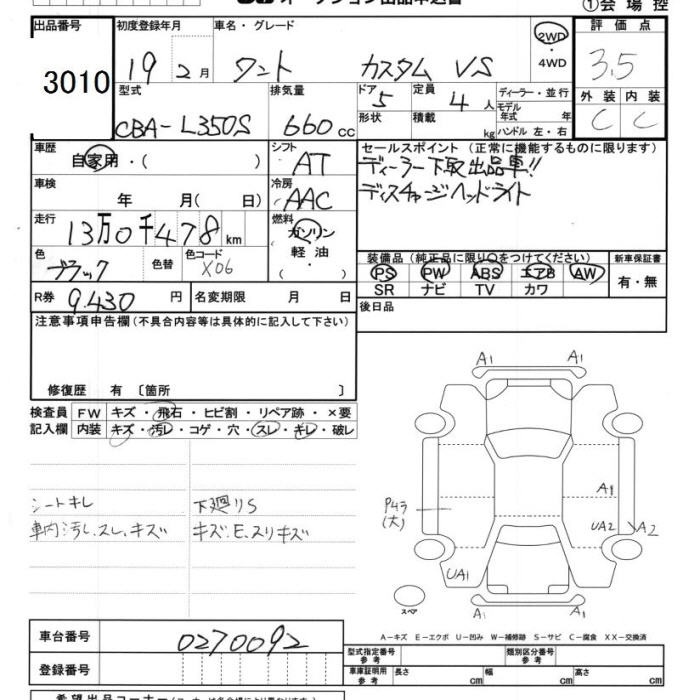 ①会場控
出品番号 初度登録年月 車名・グレード 評価点
3010 19 2月 タント カスタム VS 2WD・4WD 3.5
型式 排気量 ドア 定員 ディーラー・並行 外装 内装
CBA-L350S 660cc 5 4人 モデル年式 年 C C
形状 積載 kg ハンドル 左・右
車歴 自家用・( ) シフト AT セールスポイント（正常に機能するものに限ります）
ディーラー下取出品車!!
車検 年 月( 日) 冷房 AAC ディスチャージヘッドライト
走行 13万0千478km 燃料 ガソリン・軽油・( )
色 ブラック 色替 色コード X06
装備品（純正品に限り○をつけてください） 新車保証書
PS PW ABS エアB AW 有・無
SR ナビ TV カワ
R券 9.430円 名変期限 月 日 後日品
注意事項申告欄（不具合内容等は具体的に記入して下さい）
修復歴 有 〔箇所 〕
検査員 FW キズ・飛石・ヒビ割・リペア跡・×要
記入欄 内装 キズ・汚レ・コゲ・穴・スレ・キレ・破レ
シートキレ 下廻りS
車内汚レ、スレ、キズ キズ.E.スリキズ
A1 A1
A1
P4ラ
(大)
UA2 A2
UA1
スペア
A1 A1
A－キズ E－エクボ U－凹み W－補修跡 S－サビ C－腐食 XX－交換済
車台番号 0270092
登録番号
型式指定番号 参考 類別区分番号 参考
車庫証明用 参考 長さ cm 幅 cm 高さ cm